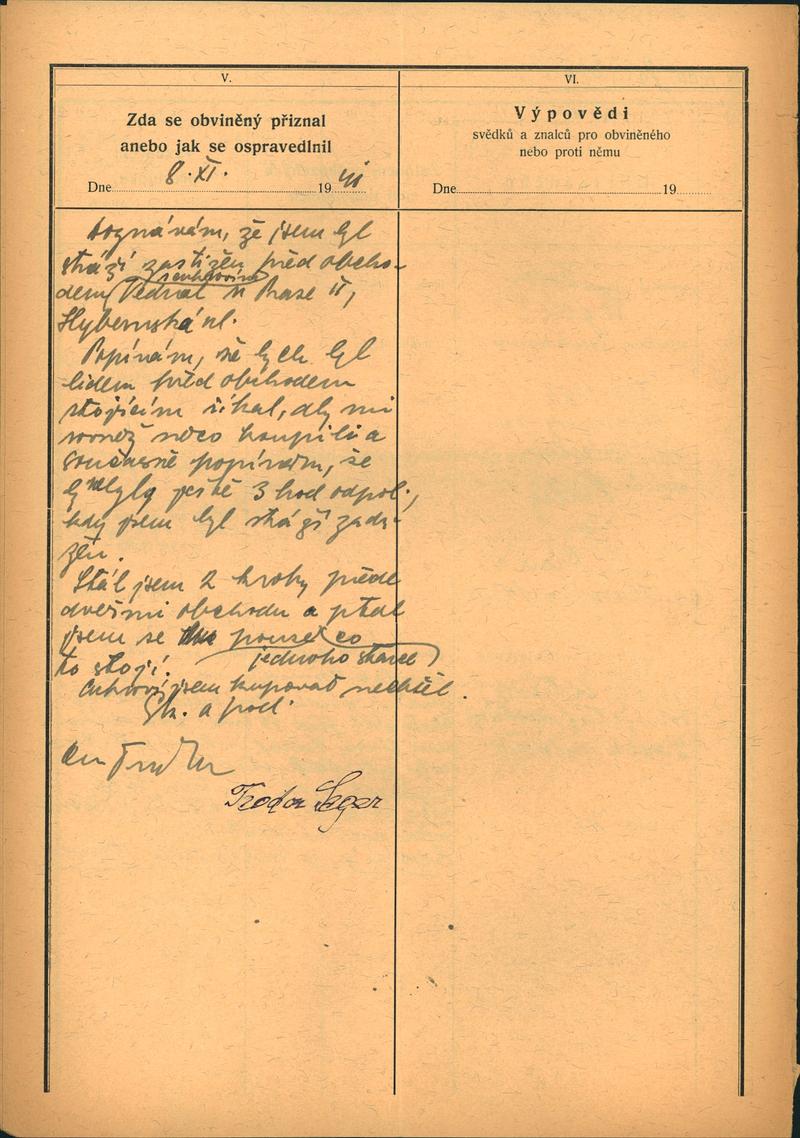 V.
Zda se obviněný přiznal
anebo jak se ospravedlnil
Dne 8. XI. 1941
VI.
Výpovědi
svědků a znalců pro obviněného
nebo proti němu
Dne 19
doznávám, že jsem byl
stráží zastižen před obcho-
dem Vednal v Praze II,
Hybernská ul.
Popírám, že bych byl
lidem před obchodem
stojícím říkal, aby mi
rovněž něco koupili a
současně popírám, že
by nebyly ještě 3 hod odpol.,
kdy jsem byl stráží zadr-
žen.
Stál jsem 2 kroky přede
dveřmi obchodu a ptal
jsem se pouze co
jednoho
to stojí.
jsem kupovat nechtěl.
a
Teodor Leger